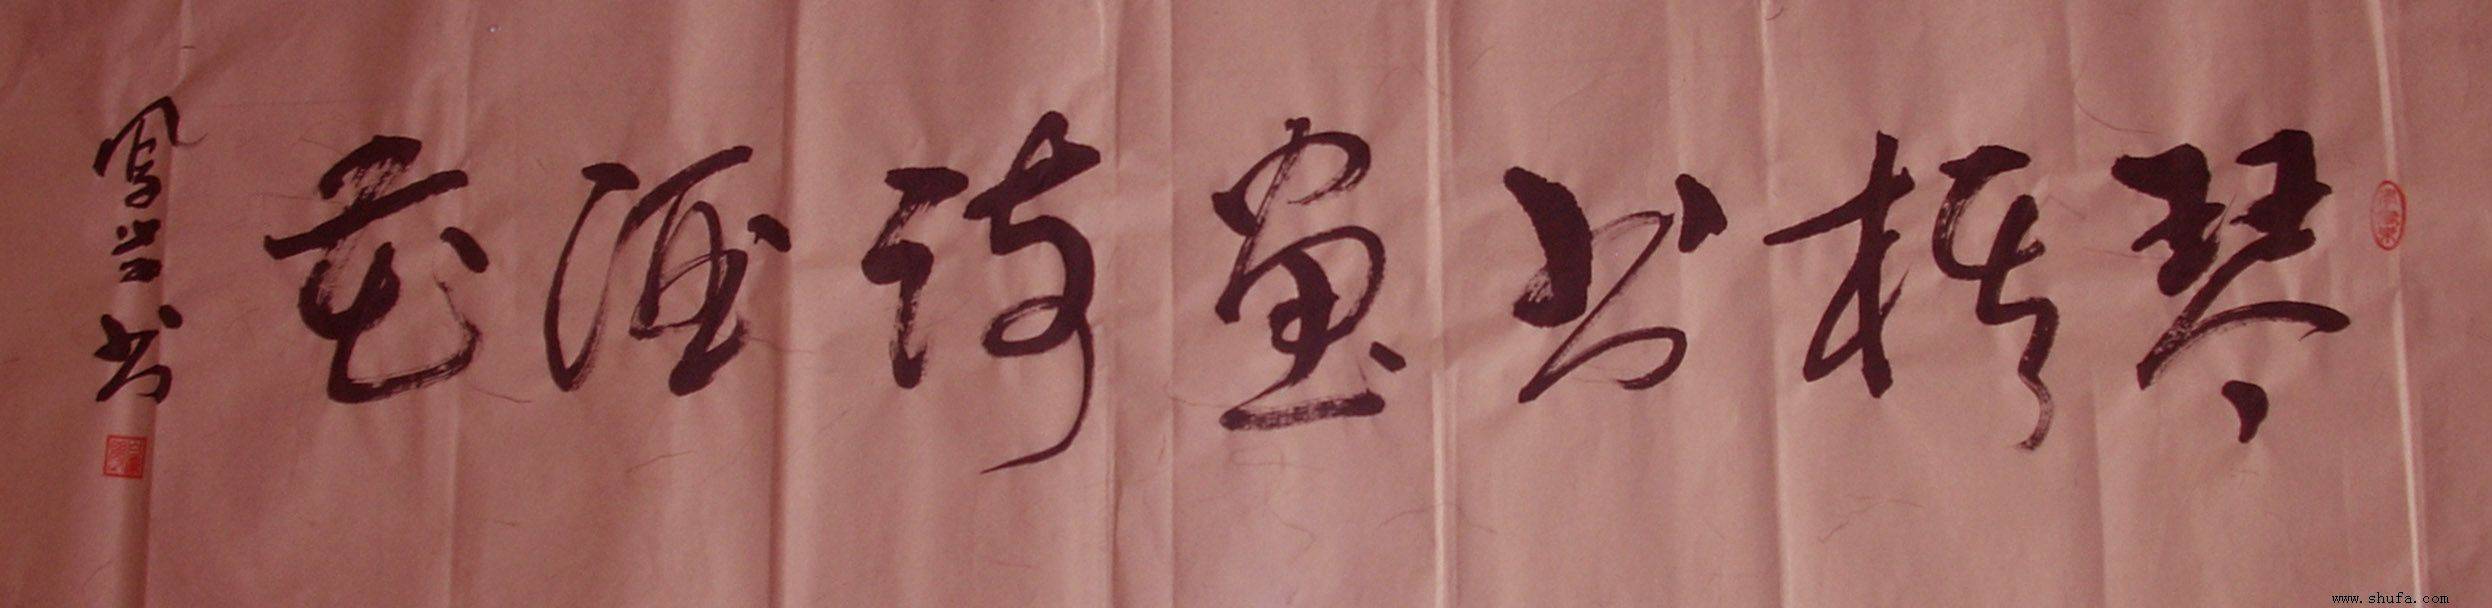 琴棋书画诗酒花
书
www.shufa.com